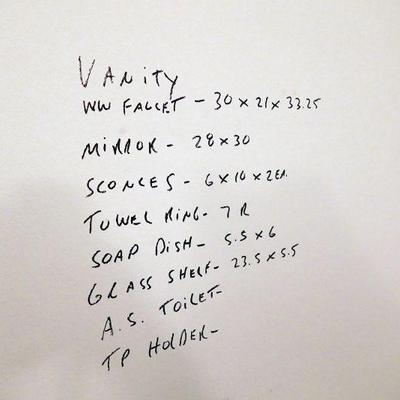 VANITY
WW FAUCET - 30 x 21 x 33.25
MIRROR - 28 x 30
SCONCES - 6 x 10 x 2 EA.
TOWEL RING - 7 R
SOAP DISH - 5.5 x 6
GLASS SHELF - 23.5 x 5.5
A.S. TOILET -
TP HOLDER -